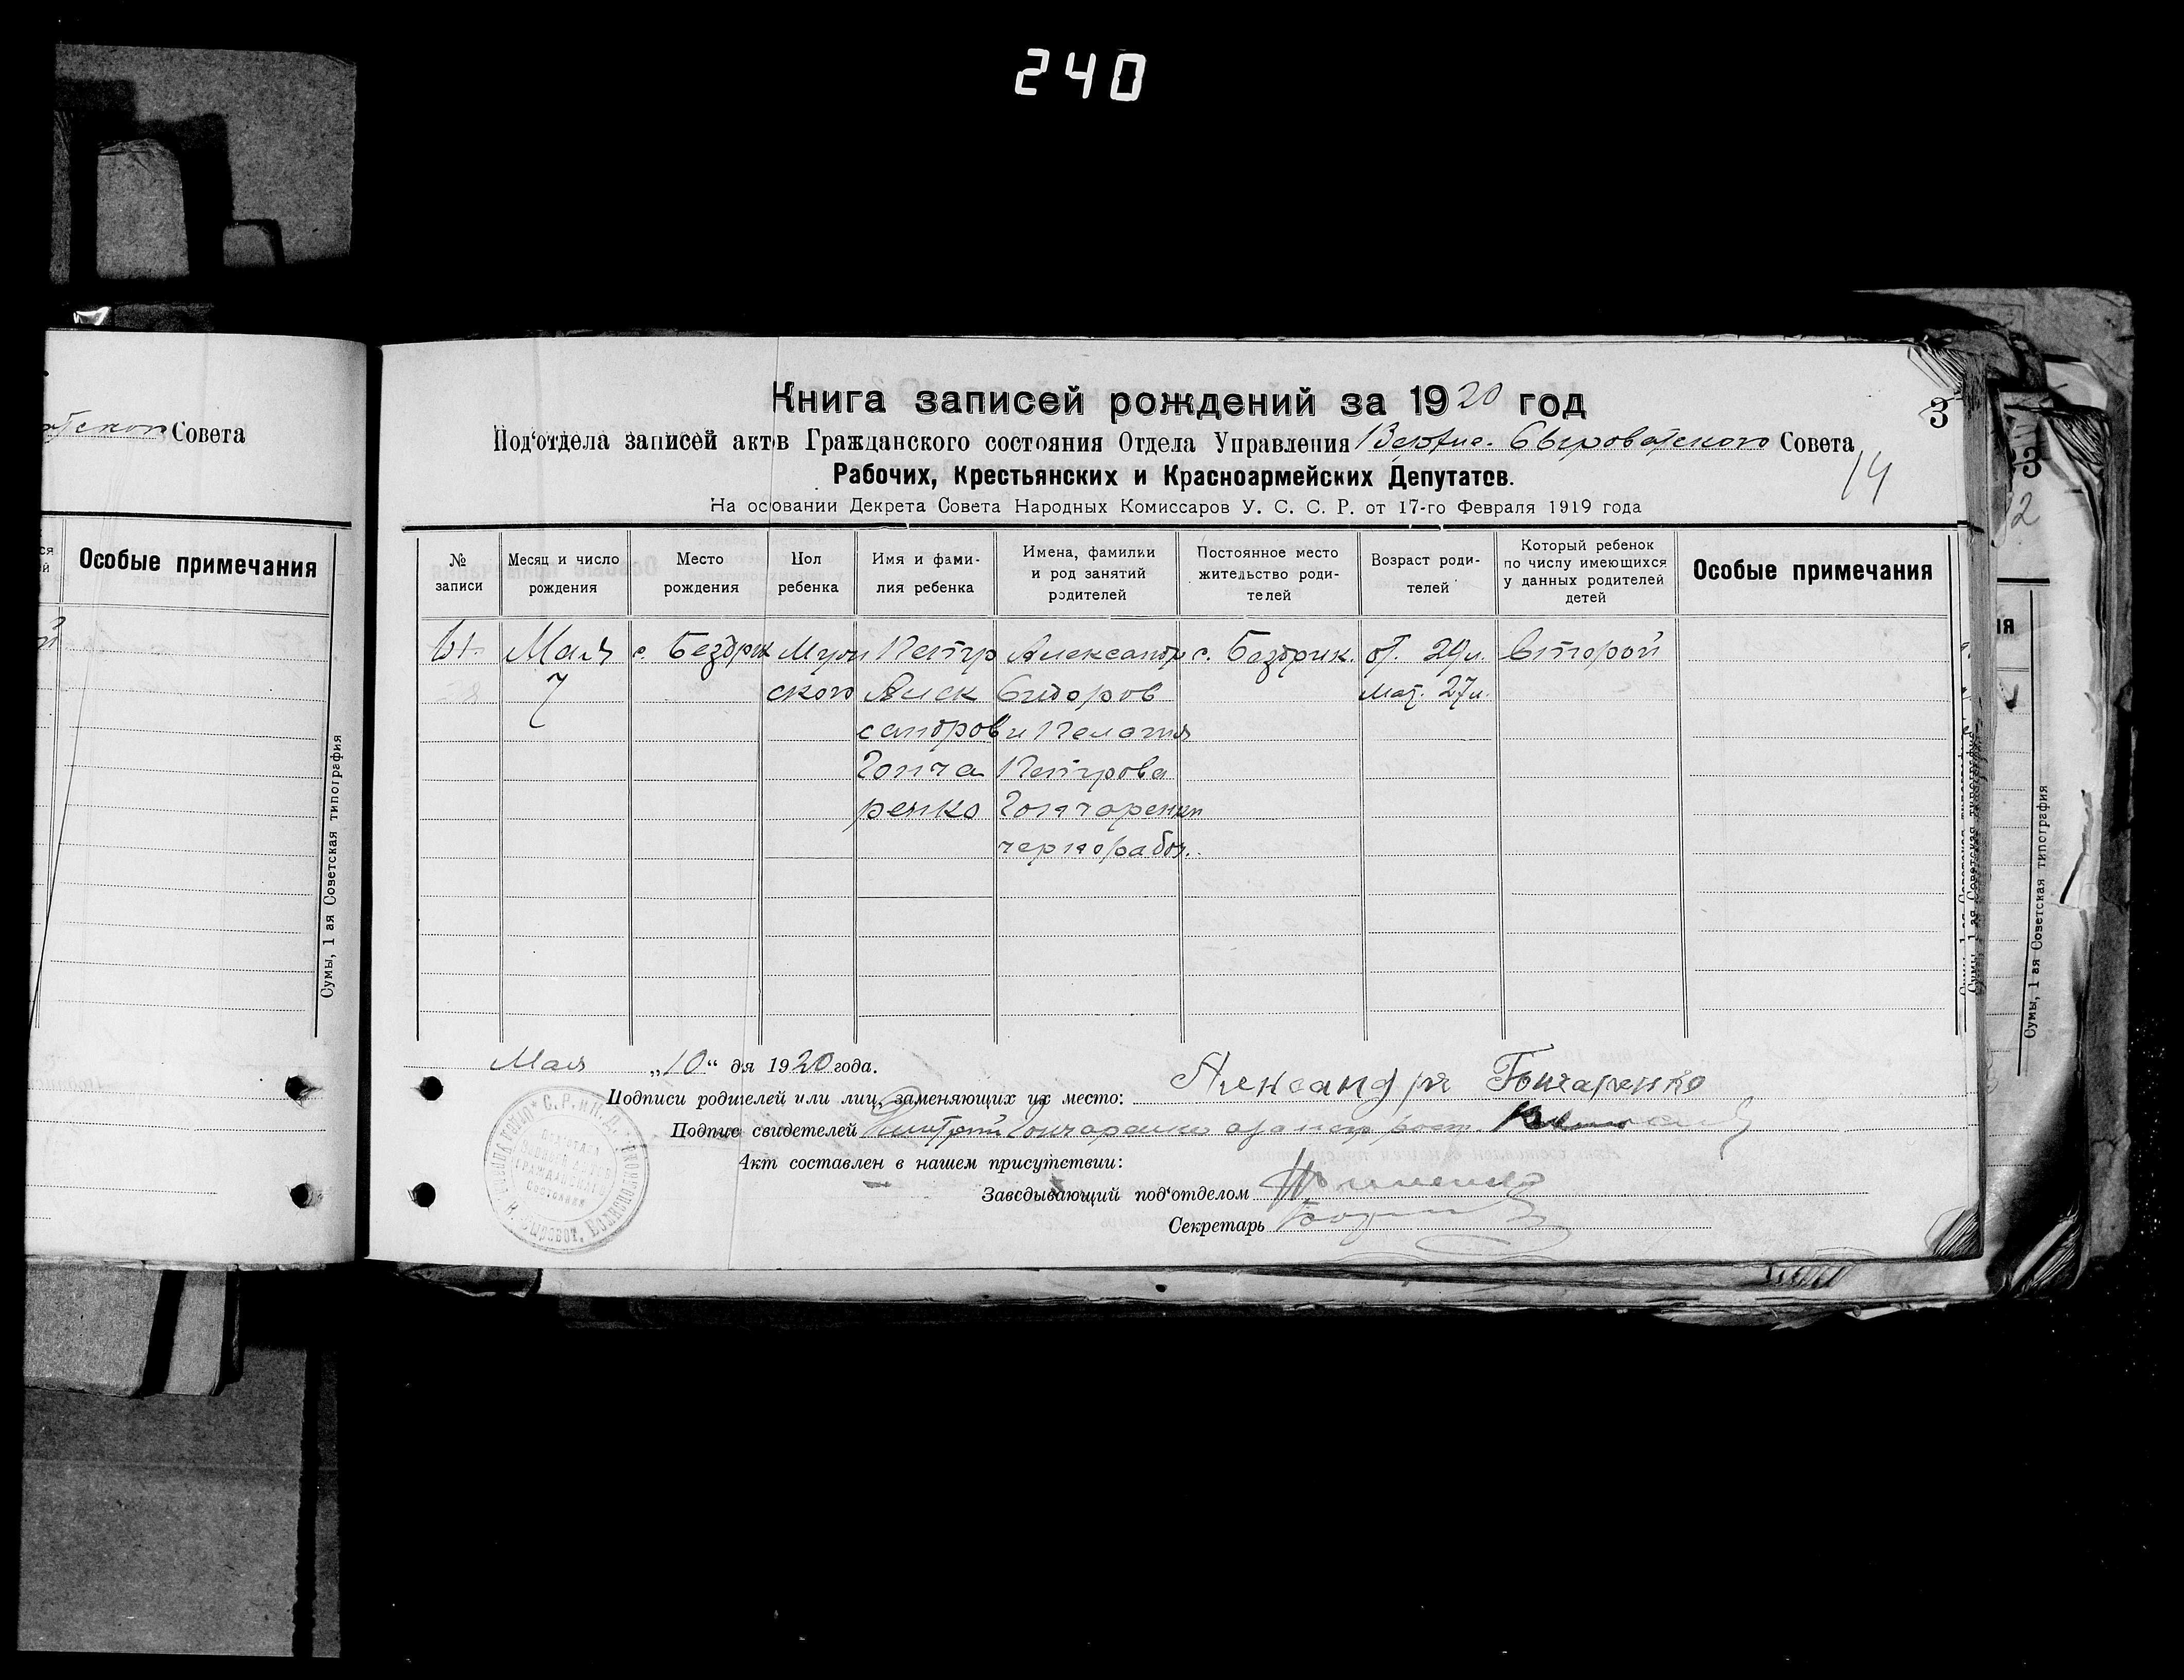 240
Совета
Особые примечания
Сумы, 1 ая Советская типография
3
14
Книга записей рождений за 1920 год
Под‘отдела записей актв Гражданского состояния Отдела Управления Верхне-Сыроватского Совета
Рабочих, Крестьянских и Красноармейских Депутатов.
На основании Декрета Совета Народных Комиссаров У. С. С. Р. от 17-го Февраля 1919 года
№ записи
Месяц и число рождения
Место рождения
Пол ребенка
Имя и фами-
лия ребенка
Имена, фамилии
и род занятий
родителей
Постоянное место
жительство роди-
телей
Возраст роди-
телей
Который ребенок
по числу имеющихся
у данных родителей
детей
Особые примечания
Мая с. Бездрик Муж Петр Александр с. Бездрик. от. 29 л. Второй
7 ского Алек Сидоров мат. 27 л.
сандров и Пелагия
Гонча Петрова
ренко Гончаренко
чернорабоч.
Мая „10“ дя 1920 года.
Подписи родителей или лиц, заменяющих их место: Александр Гончаренко
Подпис свидетелей Дмитрий Гончаренко
Акт составлен в нашем присутствии:
Заведывающий под‘отделом
Секретарь
Сумы, 1 ая Советская типография
12
3
Сумы, 1 ая Советская типография